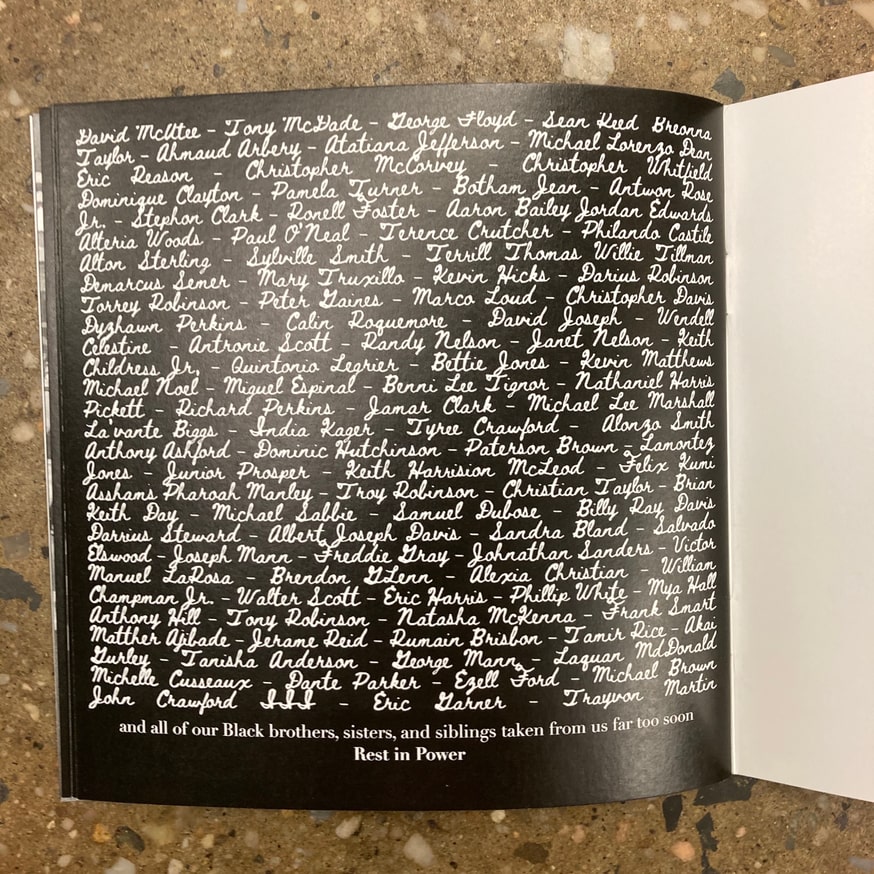 David McAtee - Tony McDade - George Floyd - Sean Reed Breonna
Taylor - Ahmaud Arbery - Atatiana Jefferson - Michael Lorenzo Dean
Eric Reason - Christopher McCorvey - Christopher Whitfield
Dominique Clayton - Pamela Turner - Botham Jean - Antwon Rose
Jr. - Stephon Clark - Ronell Foster - Aaron Bailey Jordan Edwards
Alteria Woods - Paul O'Neal - Terence Crutcher - Philando Castile
Alton Sterling - Sylville Smith - Terrill Thomas Willie Tillman
Demarcus Semer - Mary Truxillo - Kevin Hicks - Darius Robinson
Torrey Robinson - Peter Gaines - Marco Loud - Christopher Davis
Dyzhawn Perkins - Calin Roquemore - David Joseph - Wendell
Celestine - Antronie Scott - Randy Nelson - Janet Nelson - Keith
Childress Jr. - Quintonio Legrier - Bettie Jones - Kevin Matthews
Michael Noel - Miguel Espinal - Benni Lee Tignor - Nathaniel Harris
Pickett - Richard Perkins - Jamar Clark - Michael Lee Marshall
La'vante Biggs - India Kager - Tyree Crawford - Alonzo Smith
Anthony Ashford - Dominic Hutchinson - Paterson Brown - Lamontez
Jones - Junior Prosper - Keith Harrision McLeod - Felix Kumi
Asshams Pharoah Manley - Troy Robinson - Christian Taylor - Brian
Keith Day - Michael Sabbie - Samuel Dubose - Billy Ray Davis
Darrius Steward - Albert Joseph Davis - Sandra Bland - Salvado
Elswood - Joseph Mann - Freddie Gray - Johnathan Sanders - Victor
Manuel LaRosa - Brendon GLenn - Alexia Christian - William
Champman Jr. - Walter Scott - Eric Harris - Phillip White - Mya Hall
Anthony Hill - Tony Robinson - Natasha McKenna - Frank Smart
Matther Ajibade - Jerame Reid - Rumain Brisbon - Tamir Rice - Akai
Gurley - Tanisha Anderson - George Mann - Laquan MdDonald
Michelle Cusseaux - Dante Parker - Ezell Ford - Michael Brown
John Crawford III - Eric Garner - Trayvon Martin
and all of our Black brothers, sisters, and siblings taken from us far too soon
Rest in Power